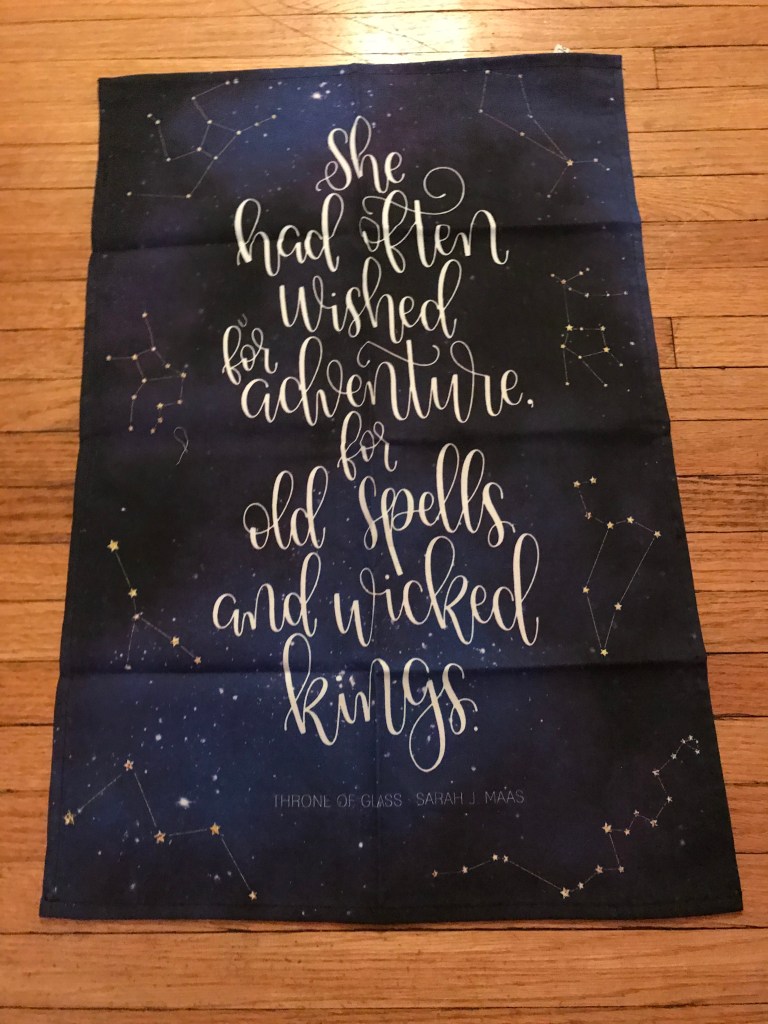 She
had often
wished
for
adventure,
for
old spells
and wicked
kings.
THRONE OF GLASS · SARAH J. MAAS